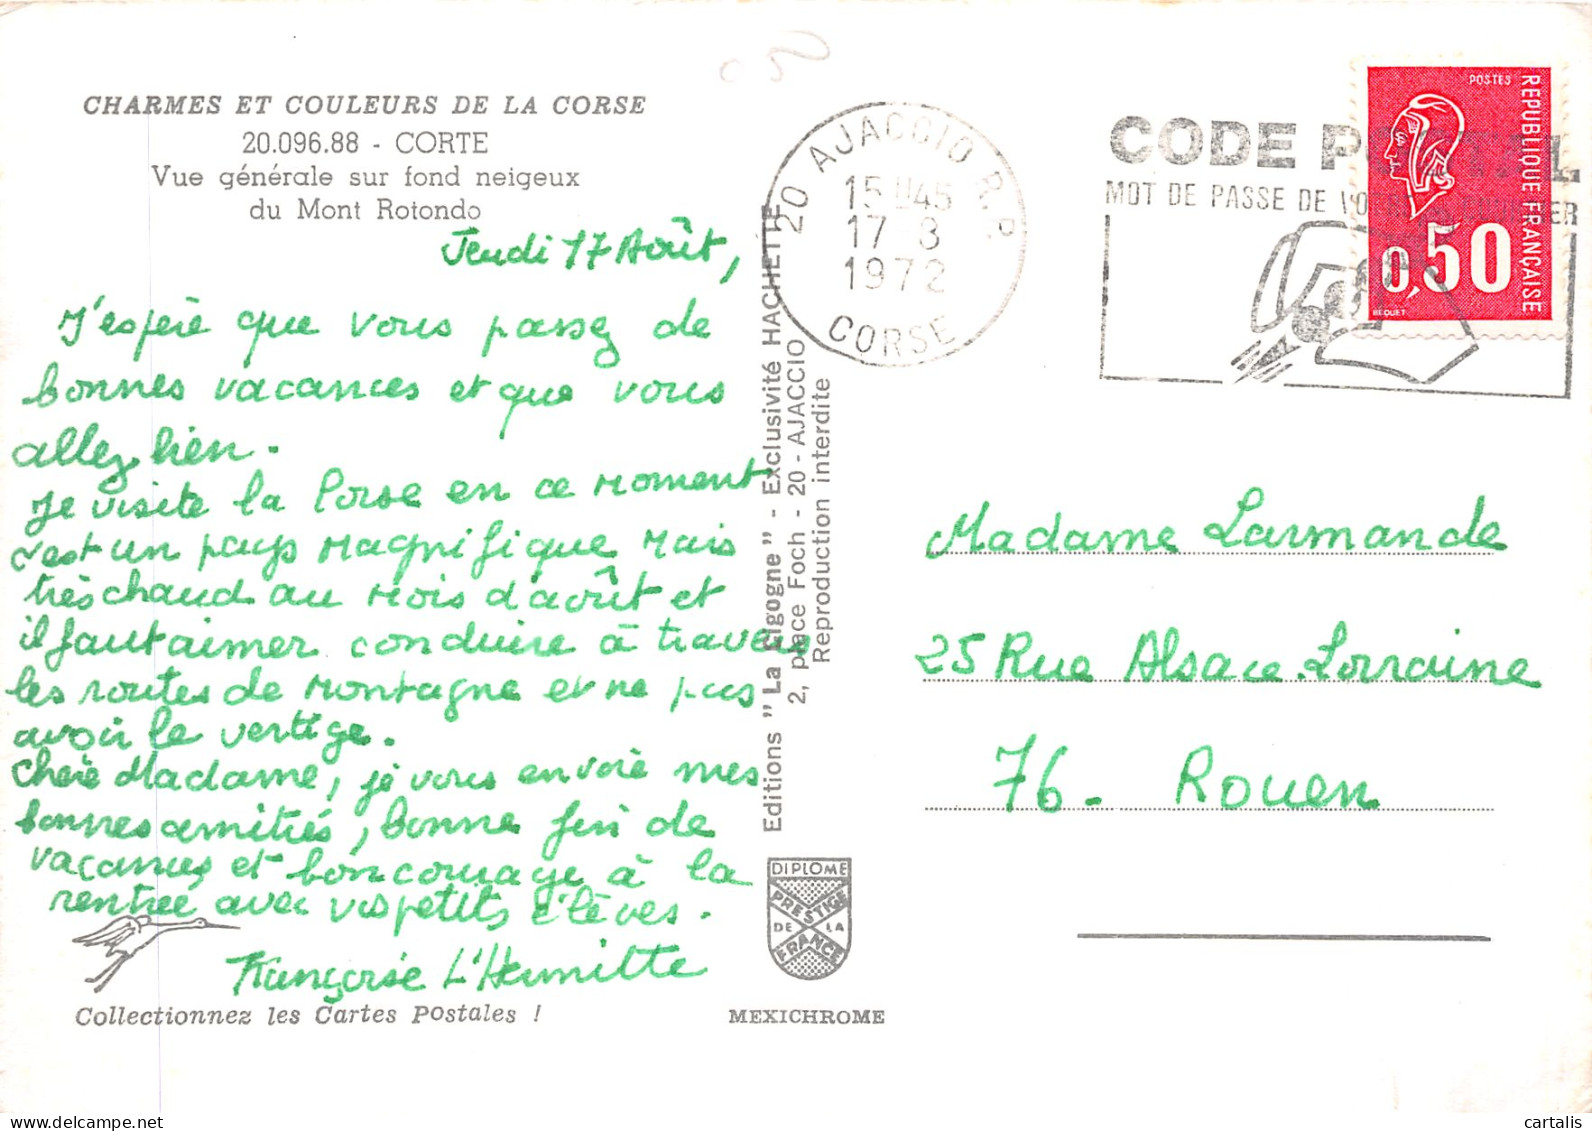 CHARMES ET COULEURS DE LA CORSE
20.096.88 - CORTE
Vue générale sur fond neigeux
du Mont Rotondo
Jeudi 17 Août,
J'espère que vous passez de
bonnes vacances et que vous
allez bien.
Je visite la Corse en ce moment
c'est un pays magnifique mais
très chaud au mois d'août et
il faut aimer conduire à travers
les routes de montagne et ne pas
avoir le vertige.
Chère Madame, je vous envoie mes
bonnes amitiés, bonne fin de
vacances et bon courage à la
rentrée avec vos petits élèves.
Françoise L'Hermitte
Collectionnez les Cartes Postales !
Editions "La Cigogne" - Exclusivité HACHETTE
2, place Foch - 20 - AJACCIO
Reproduction interdite
DIPLOME
PRESTIGE
DE LA
FRANCE
MEXICHROME
20 AJACCIO R.P.
15H45
17-8
1972
CORSE
CODE POSTAL
MOT DE PASSE DE
POSTES
REPUBLIQUE FRANÇAISE
0,50
BEQUET
Madame Larmande
25 Rue Alsace.Lorraine
76 - Rouen
cartalis